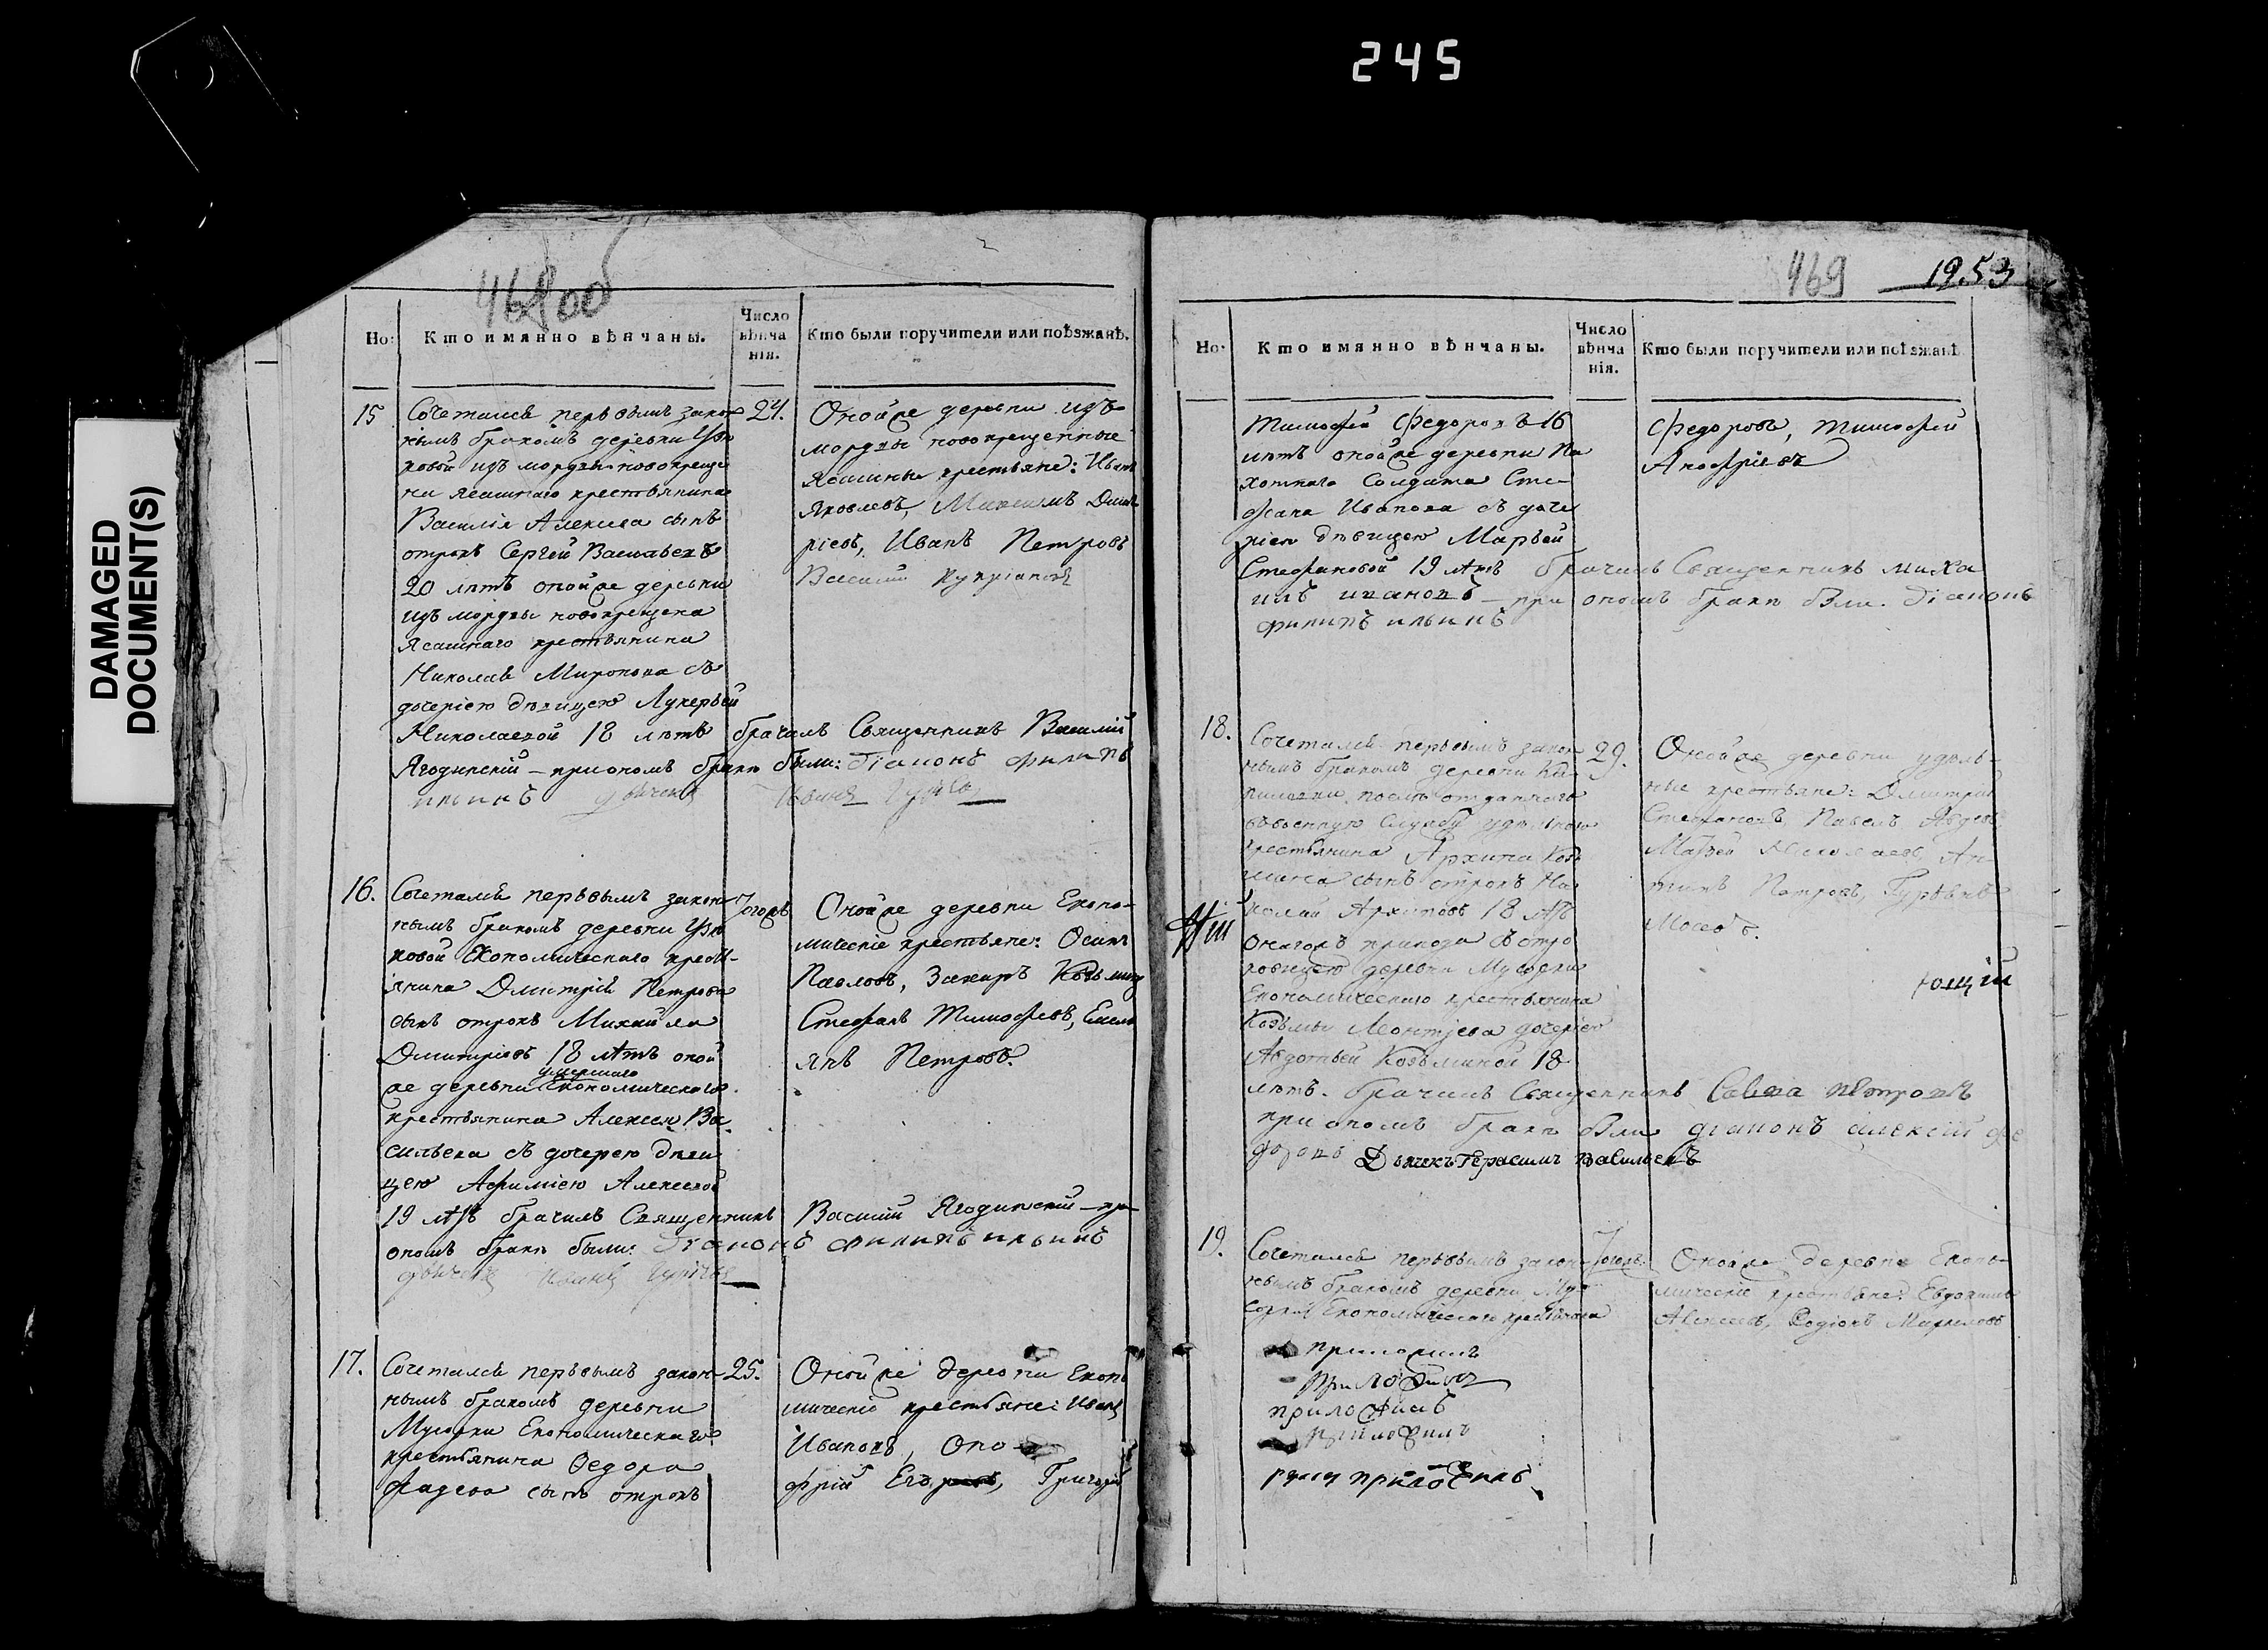 245
DAMAGED
DOCUMENT(S)
468об
Но:
Кто имянно вѣнчаны.
Число
вѣнча
нія.
Кто были поручители или поѣзжанѣ.
15
Сочетался первымъ закон
нымъ бракомъ деревни
ковой изъ мордвы новокреще
на ясашнаго крестьянина
Василія Алексѣева сынъ
отрокъ Сергей Васильевъ
20 лѣтъ оной же деревни
изъ мордвы новокрещена
ясашнаго крестьянина
Николая Миронова съ
дочерію дѣвицею Лукерьей
Николаевой 18 лѣтъ брачилъ Священникъ Василій
Ягодинскій – при ономъ бракѣ были: діаконъ филипъ
ильинъ дьячекъ Иванъ
24.
Оной же деревни изъ
мордвы новокрещенные
ясашные крестьяне: Иванъ
Яковлевъ, Максимъ Дмит
ріевъ, Иванъ Петровъ
Василий
16.
Сочетался первымъ закон
нымъ бракомъ деревни
ковой Економическаго крест-
янина Дмитрія Петрова
сынъ отрокъ Михайла
Дмитріевъ 18 лѣтъ оной
же деревни умершаго Економическаго
крестьянина Алексея Ва
сильева съ дочерю дѣви
цею Афимiею Алексеевой
19 лѣтъ брачилъ Священникъ Василій Ягодинскій – при
ономъ бракѣ были: діаконъ филипъ ильинъ
дьячекъ Иванъ
Тогожъ
Оной же деревни Еконо-
мическіе крестьяне: Осипъ
Павловъ, Захаръ Козьминъ
Стефанъ Тимофеевъ, Емель
янъ Петровъ.
17.
Сочетался первымъ закон-
нымъ бракомъ деревни
Мусорки Економическаго
крестьянина Федора
Фадеева сынъ отрокъ
25.
Оной же деревни Еконо
мическіе крестьяне: Иванъ
Ивановъ, Оно
фрій Егоровъ, Григорій
469
1253
Но:
Кто имянно вѣнчаны.
Число
вѣнча
нія.
Кто были поручители или поѣзжанѣ
Тимофей Федоровъ 16
лѣтъ оной же деревни Па
хотнаго Солдата Сте-
фана Иванова съ доче
ріею дѣвицею Марьей
Стефановой 19 лѣтъ брачилъ Священникъ миха
илъ ивановъ – при ономъ бракѣ были. діаконъ
филипъ ильинъ
Федоровъ, Тимофей
Анофріевъ
18.
Сочетался первымъ закон
нымъ бракомъ деревни
отданнаго
въ военную службу удѣлнаго
крестьянина Архипа Козь
мина сынъ отрокъ Ни
колай Архиповъ 18 лѣтъ
онагожъ прихода съ отро
ковицею деревни Мусорки
Економическаго крестьянина
Козьмы Леонтіева дочерію
Авдотьей Козьминой 18
лѣтъ. брачилъ Священникъ Савва петровъ
при ономъ бракѣ были діаконъ алексій фе
доровъ Дьячекъ Герасимъ Васильевъ
29.
Оной же деревни удѣль-
ные крестьяне: Дмитрій
Стефановъ, Павелъ Авдеевъ
Матвей Николаевъ, Ан
типъ Петровъ,
ющій
19.
Сочетался первымъ закон
нымъ бракомъ деревни Му-
сорки Економическаго крестьянина
Тогожъ.
Оной же деревни Еконо-
мическіе крестьяне: Евдокимъ
Алексеевъ, Родіонъ Маркеловъ
приложилъ
приложилъ
приложилъ
приложилъ
руку приложилъ